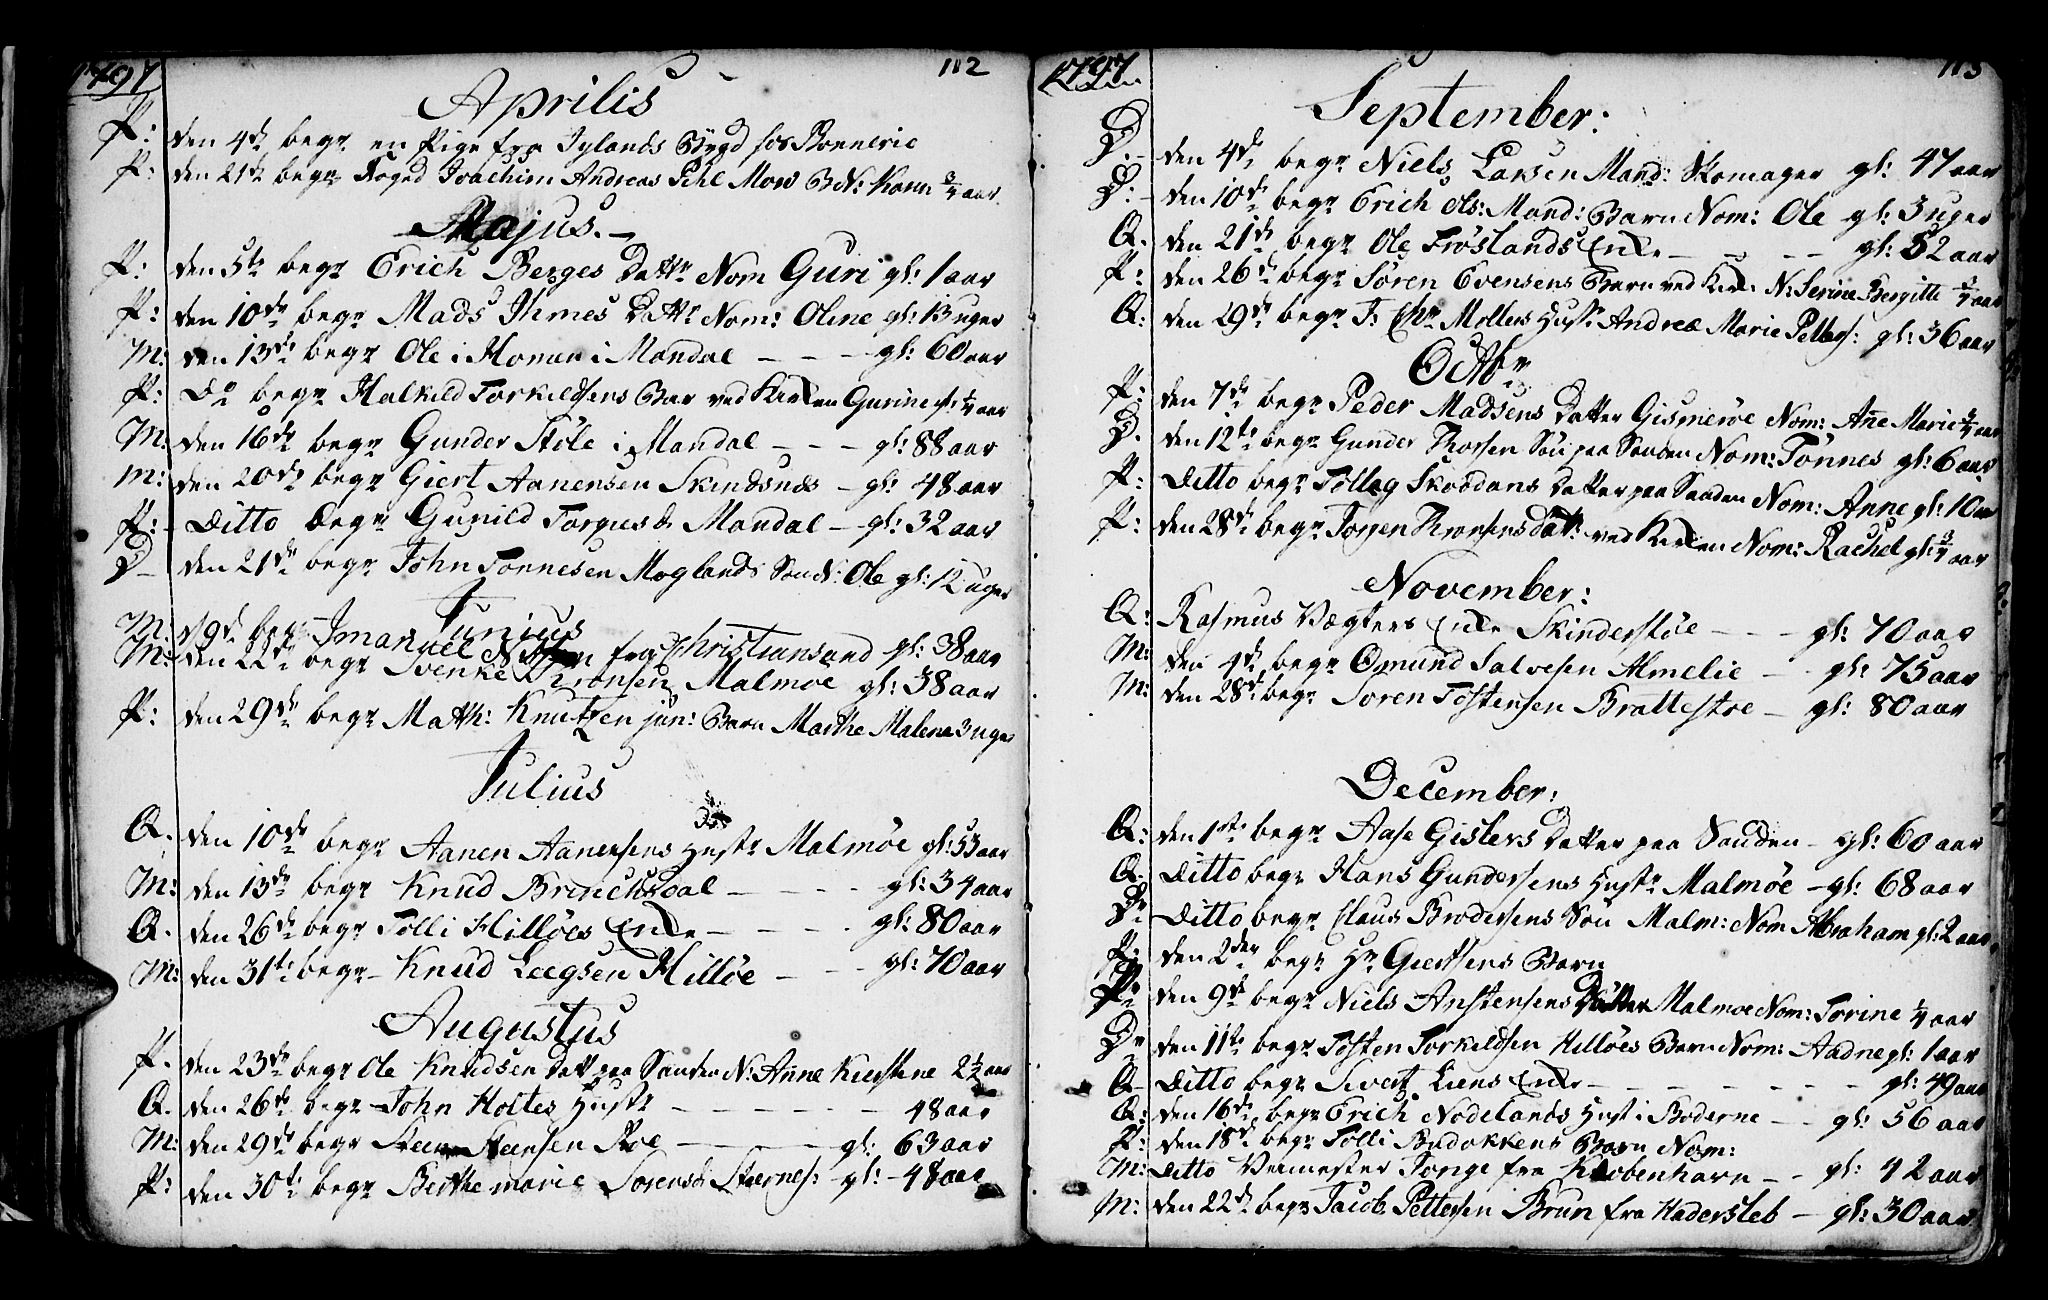 1797
112
Aprilis
P: den 4de begr en Pige fra Jylands Bÿgd hos Bonnevie
P: den 21de begr Foged Joachim Andreas Pihl Mow B N: Hann 3/4 aar
Majus.
P: den 5te begr Erich Berges Dattr Nom Guri gl: 1 aar
P: den 10de begr Mads Ihmes Dattr Nom: Oline gl: 13 uger
M: den 13de begr Ole i Monan i Mandal - - - gl: 60 aar
P: Do begr Halkild Torkildsens Bar ved Kirken Gurine gl: 1/4 aar
M: den 16de begr Gunder Støle i Mandal - - - gl: 88 aar
M: den 20de begr Giert Aanensen Skindsnæs - gl: 48 aar
P: Ditto begr Gunild Torgusdr Mandal - gl: 32 aar
D den 21de begr John Tønnesen Moglands Søn N: Ole gl: 12 uger
Junius
M: 19de begr Imanuel fra Christiansand gl: 38 aar
M: den 22de begr Svenke Aronsen Malmøe gl: 38 aar
P: den 29de begr Math: Knutzen jun: Barn Marthe Malene 3 uger
Julius
Q. den 10de begr Aanen Aanensens Hustr Malmöe gl: 53 aar
M: den 13de begr Knud Brinchsdal - - - - gl: 34 aar
Q. den 26de begr Tolli Hillöes Enke - - - - gl: 80 aar
M: den 31te begr Knud Leegsen Hillöe - - - gl: 70 aar
Augustus
P. den 23de begr Ole Knudsen Datt paa Sanden N: Anne Kierstine 2 1/2 aar
Q. den 26de begr John Holtes Hustr - - - - - - 48 aar
M: den 29de begr Steen Steensen Roe - - - - gl: 63 aar
P: den 30te begr Berthe marie Sorensdr Stærnes: gl: 48 aar
1797
113
September:
D: den 4de begr Niels Larsen Mand: Skomager gl: 47 aar
D: den 10de begr Erich Ols: Mand: Barn Nom: Ole gl: 3 uger
Q. den 21de begr Ole Fröslands Enke - - - - gl: 52 aar
P: den 26de begr Sören Evensens Barn ved Kirk N: Serine Bergitte 3/4 aar
Q: den 29de begr F: Chr Mollers Hustr Andreæ Marie Petters: gl: 36 aar
Octbr
P: den 7de begr Peder Madsens Datter Gismeröe Nom: Ane Marie 3/4 aar
D. den 12te begr Gunder Thorsen Sön paa Sanden Nom: Tönnes gl: 6 aar
P: Ditto begr Tolleg Skoddans Datter paa Sanden Nom: Anne gl: 10 aar
P: den 28de begr Torjen Thronsens Datt: ved Kirken Nom: Rachel gl: 3/4 aar
November:
Q: Rasmus Vægters Enke Skinderstöe - - - gl: 70 aar
M: den 4de begr Omund Salvesen Almelie - - gl: 75 aar
M: den 28de begr Soren Tostensen Brattestöe - gl: 80 aar
December:
Q: den 1ste begr Aase Gislers Datter paa Sanden - gl: 60 aar
Q. Ditto begr Hans Gundersens Hustr Malmöe - gl: 68 aar
Dr Ditto begr Claus Brodersens Søn Malm: Nom Abraham gl: 2 aar
P: den 2den begr Hr Giertsens Barn
P: den 9de begr Niels Anstensens Datter Malmoe Nom: Torine 1/4 aar
Dr den 11te begr Tosten Torkeldsen Hillöes Barn Nom: Aadne gl: 1 aar
Q Ditto begr Sivert Liens Enke - - - - - - - gl: 49 aar
Q: den 16de begr Erich Nodelands Hust i Boderne - - gl: 56 aar
P: den 18de begr Tolli Budokkens Barn Nom:
M: Ditto Veimester Tonge fra Kiobenhavn - - gl: 42 aar
M: den 22de begr Jacob Pettersen Brun fra Hadersleb - gl: 30 aar